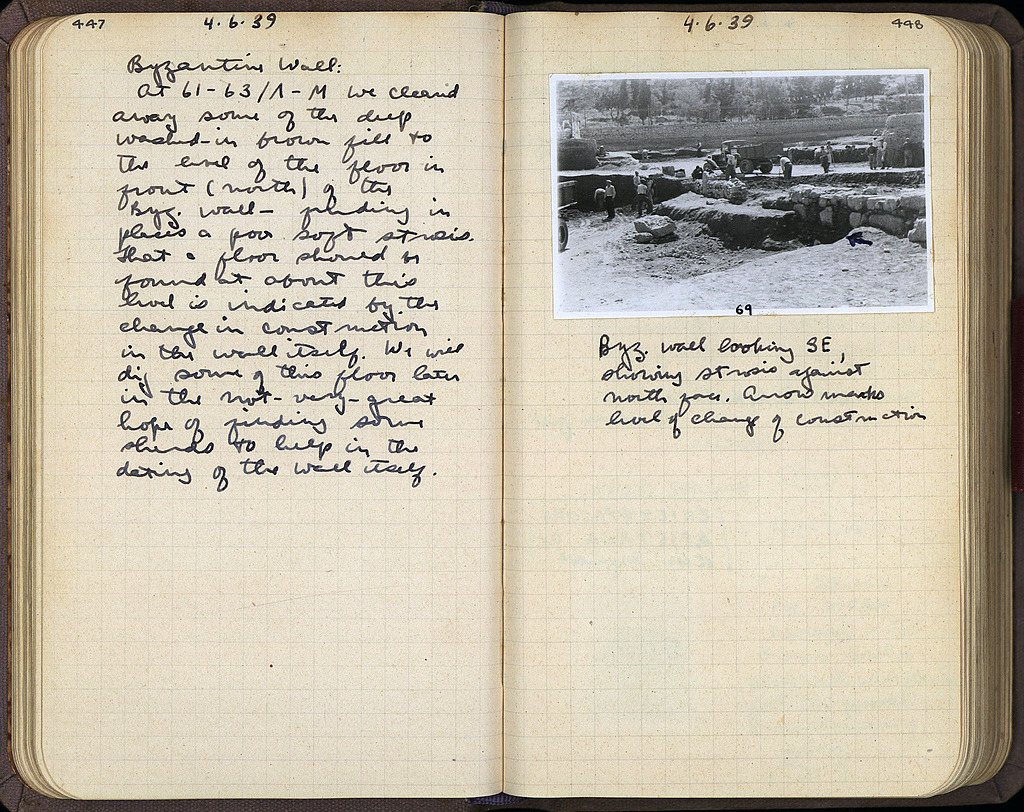 447
4.6.39
Byzantine Wall:
At 61-63/Λ-M we cleared
away some of the deep
washed-in brown fill to
the level of the floor in
front (north) of the
Byz. wall - finding in
places a poor soft strosis.
That a floor should be
found at about this
level is indicated by the
change in construction
in the wall itself. We will
dig some of this floor later
in the not-very-great
hope of finding some
sherds to help in the
dating of the wall itself.
4.6.39
448
69
Byz. wall looking SE,
showing strosis against
north face. Arrow marks
level of change of construction